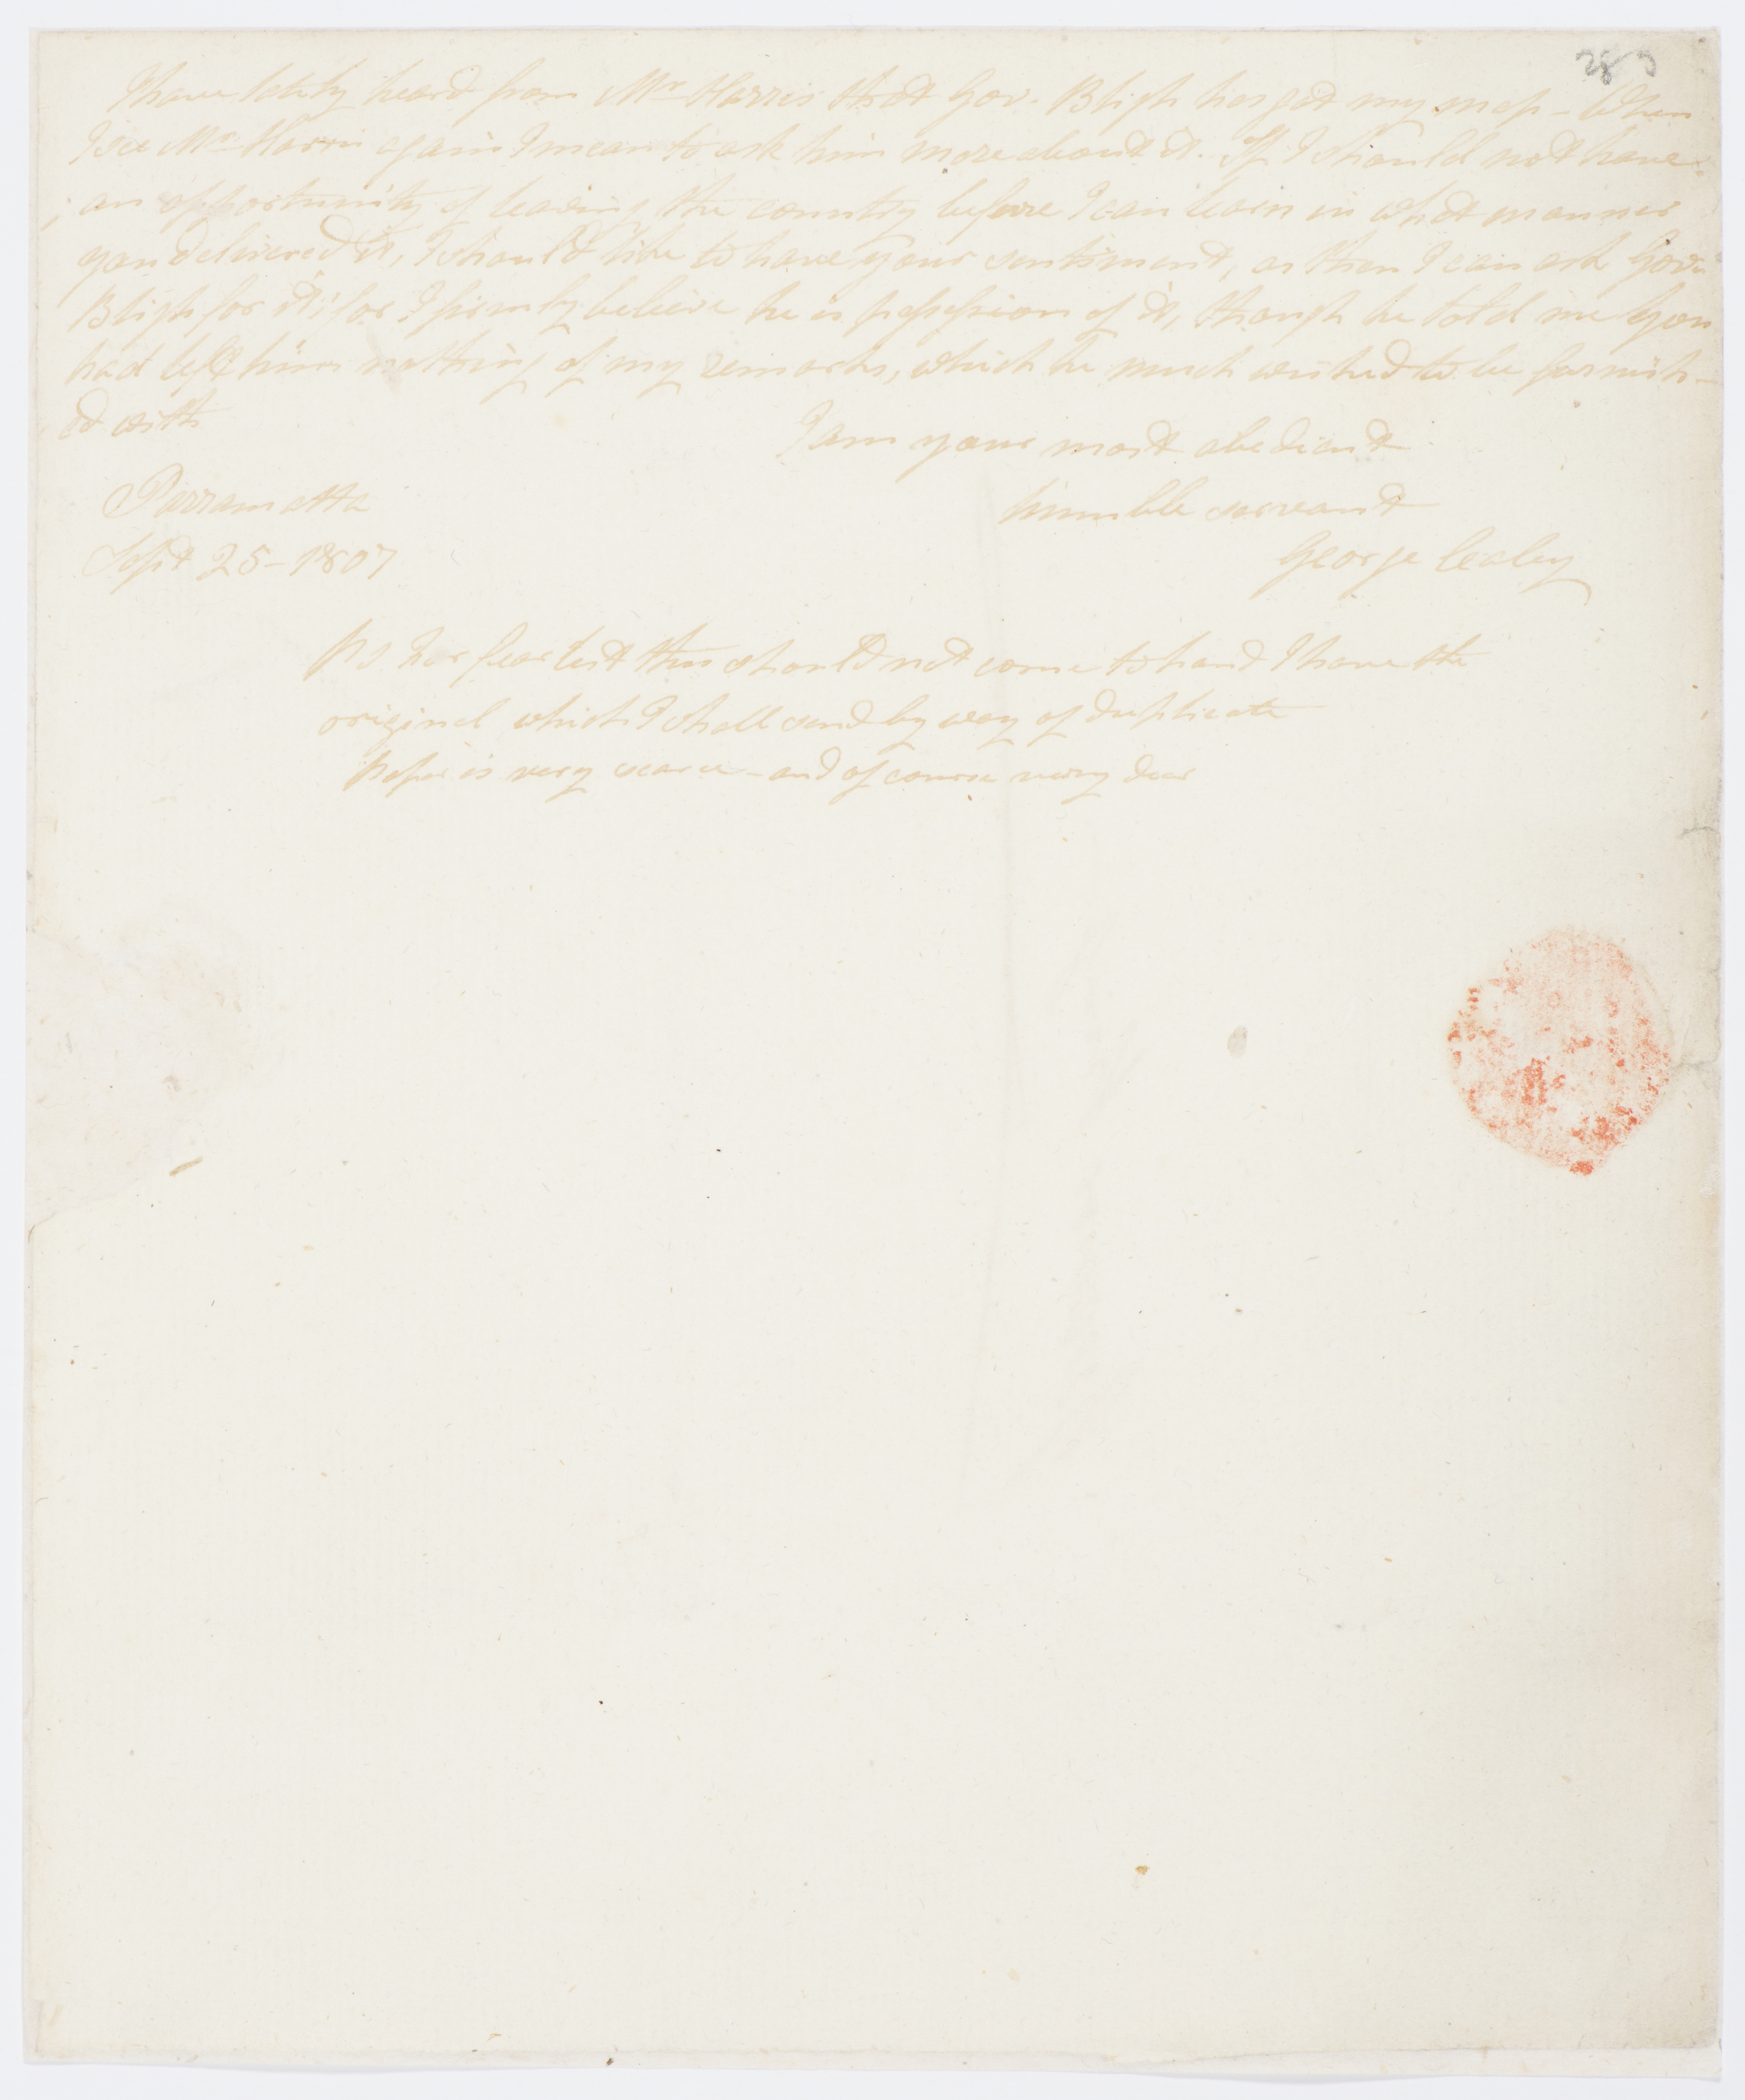 283
I have lately heard from Mr Harris that Gov. Bligh has got my map - When
I see Mr Harris again I mean to ask him more about it. If I should not have
an opportunity of leaving the country before I can learn in what manner
you delivered it, I should like to have your sentiment, as then I can ask Gov.
Bligh for it; for I firmly believe he is possession of it, though he told me you
had left him nothing of my remarks, which he much wished to be furnish-
ed with
I am your most obedient
Parramatta
humble servant
Sept 25 - 1807
George Caley
PS For fear lest this should not come to hand I have the
original which I shall send by way of duplicate
Paper is very scarce - and of course very dear